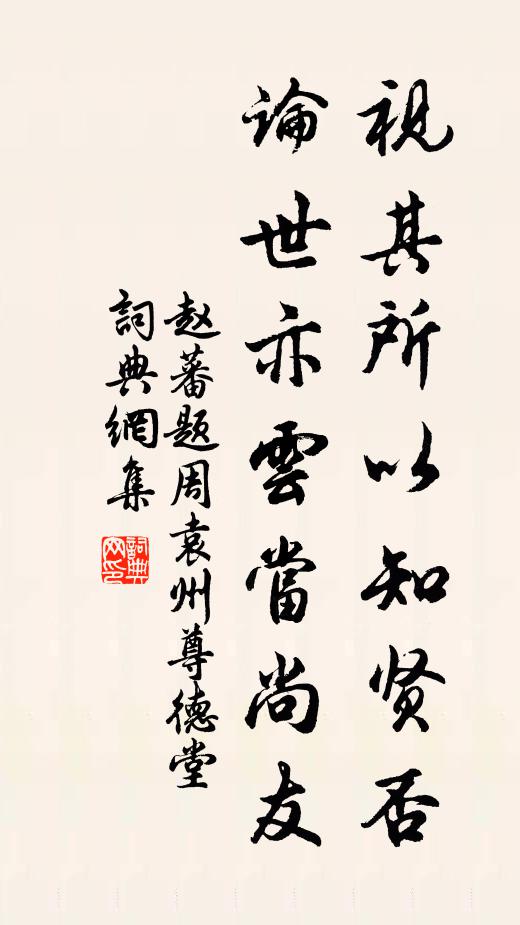 視其所以知贤否
論世亦雲當尚友
赵蕃题周袁州尊德堂
詞典網集
詞典網印